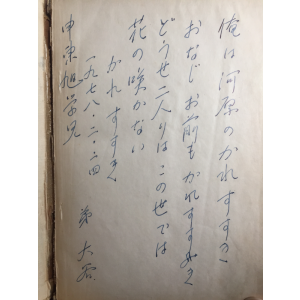 俺は河原のかれすすき
おなじお前もかれすすき
どうせ二人りはこの世では
花の咲かない
かれすすき
一九七八・二・二四
申東旭学兄
弟 大容